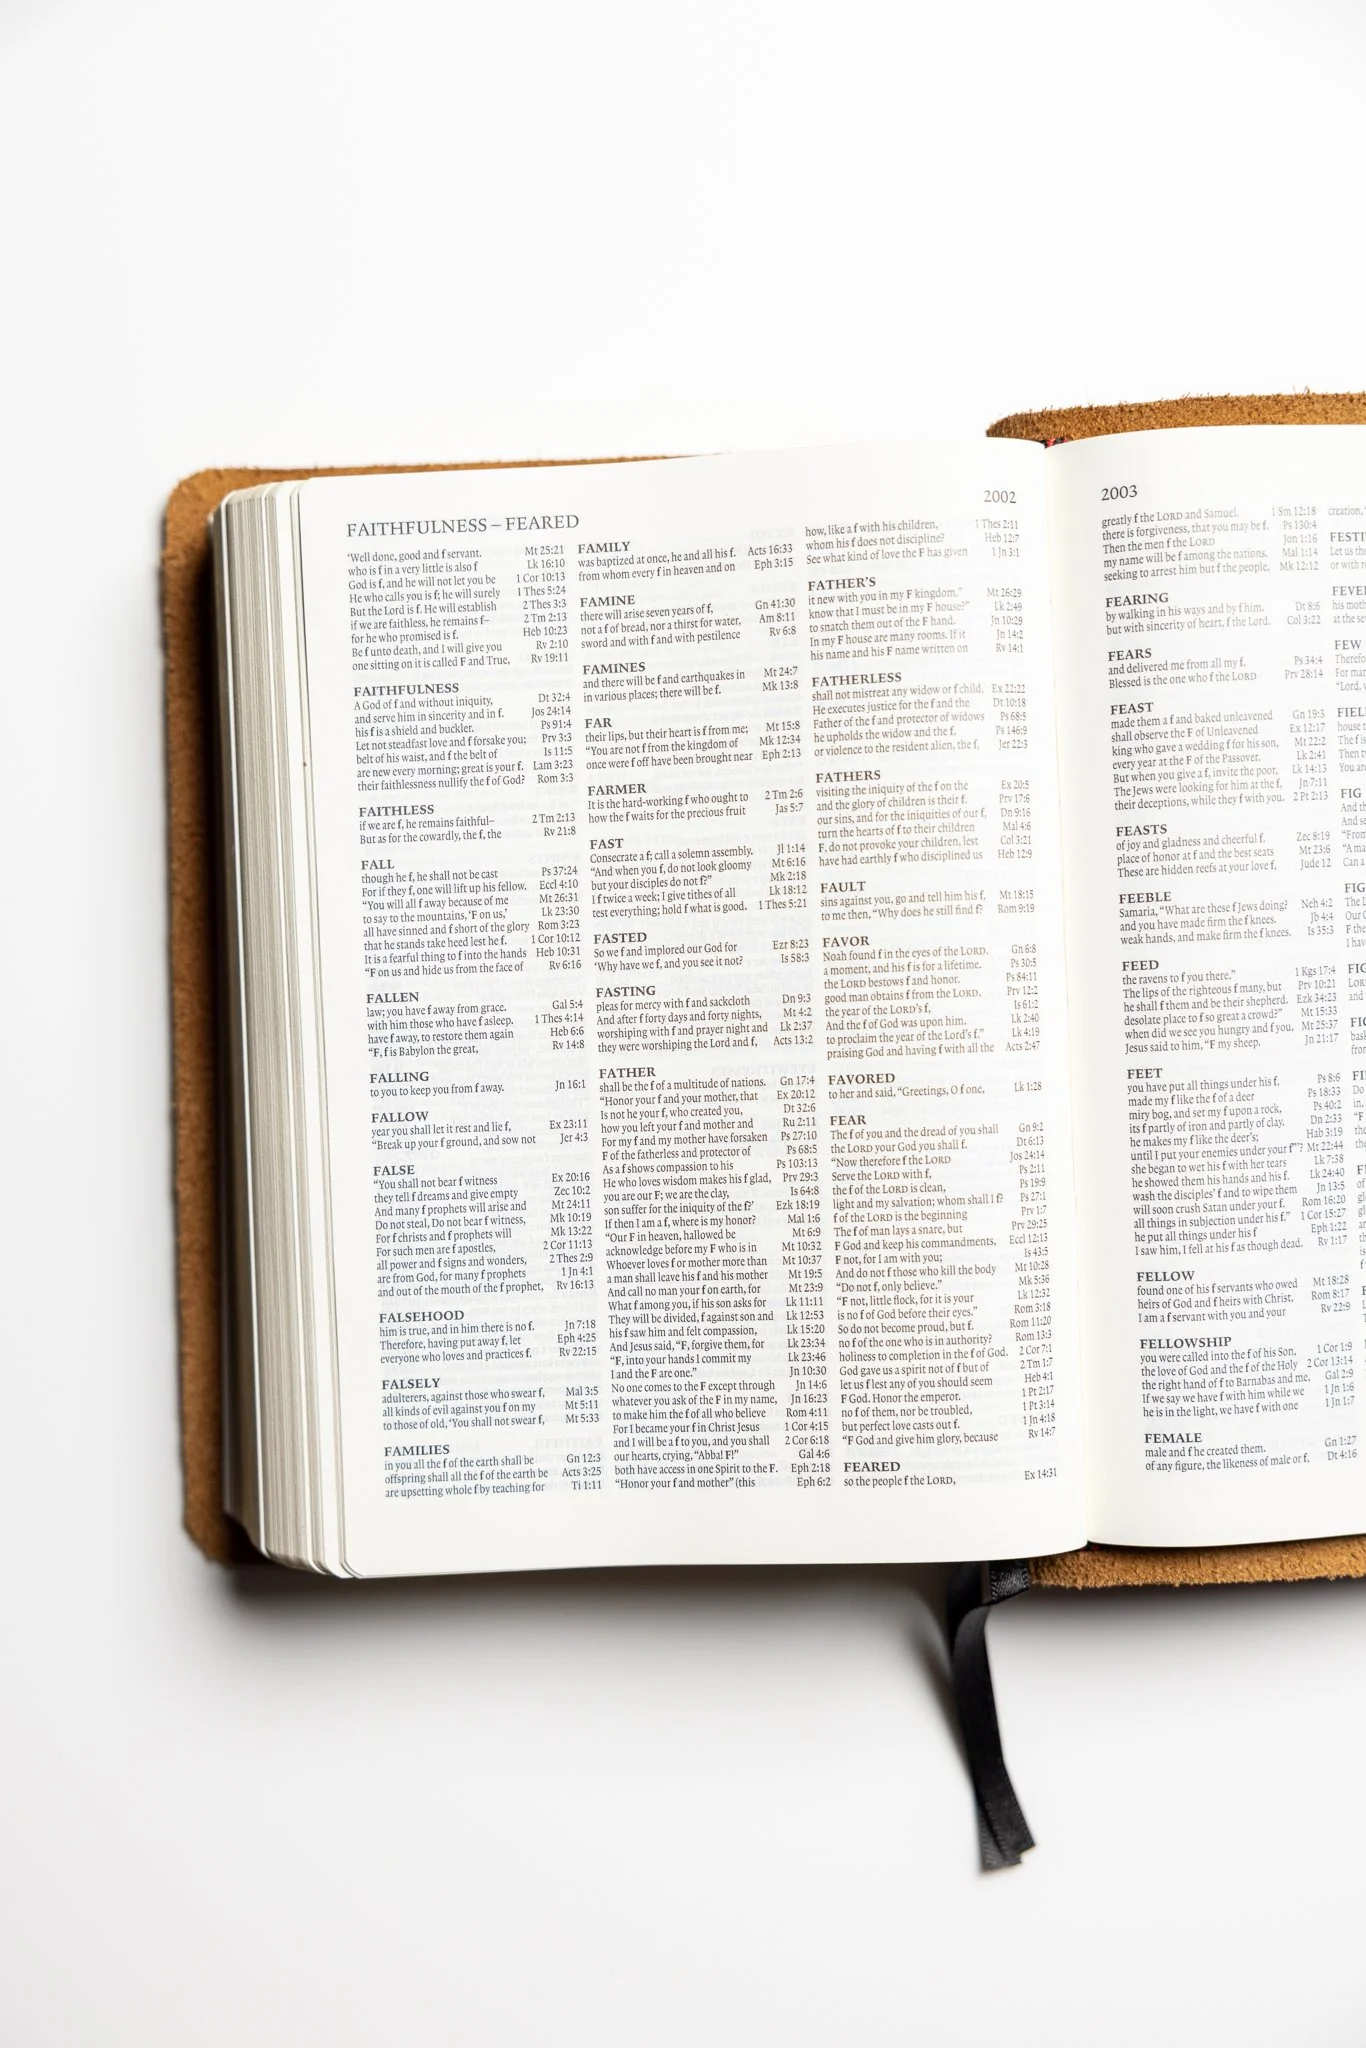 FAITHFULNESS – FEARED
2002
'Well done, good and f servant. Mt 25:21
who is f in a very little is also f Lk 16:10
God is f, and he will not let you be 1 Cor 10:13
He who calls you is f; he will surely 1 Thes 5:24
But the Lord is f. He will establish 2 Thes 3:3
if we are faithless, he remains f– 2 Tm 2:13
for he who promised is f. Heb 10:23
Be f unto death, and I will give you Rv 2:10
one sitting on it is called F and True, Rv 19:11
FAITHFULNESS
A God of f and without iniquity, Dt 32:4
and serve him in sincerity and in f. Jos 24:14
his f is a shield and buckler. Ps 91:4
Let not steadfast love and f forsake you; Prv 3:3
belt of his waist, and f the belt of Is 11:5
are new every morning; great is your f. Lam 3:23
their faithlessness nullify the f of God? Rom 3:3
FAITHLESS
if we are f, he remains faithful– 2 Tm 2:13
But as for the cowardly, the f, the Rv 21:8
FALL
though he f, he shall not be cast Ps 37:24
For if they f, one will lift up his fellow. Eccl 4:10
"You will all f away because of me Mt 26:31
to say to the mountains, 'F on us,' Lk 23:30
all have sinned and f short of the glory Rom 3:23
that he stands take heed lest he f. 1 Cor 10:12
It is a fearful thing to f into the hands Heb 10:31
"F on us and hide us from the face of Rv 6:16
FALLEN
law; you have f away from grace. Gal 5:4
with him those who have f asleep. 1 Thes 4:14
have f away, to restore them again Heb 6:6
"F, f is Babylon the great, Rv 14:8
FALLING
to you to keep you from f away. Jn 16:1
FALLOW
year you shall let it rest and lie f, Ex 23:11
"Break up your f ground, and sow not Jer 4:3
FALSE
"You shall not bear f witness Ex 20:16
they tell f dreams and give empty Zec 10:2
And many f prophets will arise and Mt 24:11
Do not steal, Do not bear f witness, Mk 10:19
For f christs and f prophets will Mk 13:22
For such men are f apostles, 2 Cor 11:13
all power and f signs and wonders, 2 Thes 2:9
are from God, for many f prophets 1 Jn 4:1
and out of the mouth of the f prophet, Rv 16:13
FALSEHOOD
him is true, and in him there is no f. Jn 7:18
Therefore, having put away f, let Eph 4:25
everyone who loves and practices f. Rv 22:15
FALSELY
adulterers, against those who swear f, Mal 3:5
all kinds of evil against you f on my Mt 5:11
to those of old, 'You shall not swear f, Mt 5:33
FAMILIES
in you all the f of the earth shall be Gn 12:3
offspring shall all the f of the earth be Acts 3:25
are upsetting whole f by teaching for Ti 1:11
FAMILY
was baptized at once, he and all his f. Acts 16:33
from whom every f in heaven and on Eph 3:15
FAMINE
there will arise seven years of f, Gn 41:30
not a f of bread, nor a thirst for water, Am 8:11
sword and with f and with pestilence Rv 6:8
FAMINES
and there will be f and earthquakes in Mt 24:7
in various places; there will be f. Mk 13:8
FAR
their lips, but their heart is f from me; Mt 15:8
"You are not f from the kingdom of Mk 12:34
once were f off have been brought near Eph 2:13
FARMER
It is the hard-working f who ought to 2 Tm 2:6
how the f waits for the precious fruit Jas 5:7
FAST
Consecrate a f; call a solemn assembly. Jl 1:14
"And when you f, do not look gloomy Mt 6:16
but your disciples do not f?" Mk 2:18
I f twice a week; I give tithes of all Lk 18:12
test everything; hold f what is good. 1 Thes 5:21
FASTED
So we f and implored our God for Ezr 8:23
'Why have we f, and you see it not? Is 58:3
FASTING
pleas for mercy with f and sackcloth Dn 9:3
And after f forty days and forty nights, Mt 4:2
worshiping with f and prayer night and Lk 2:37
they were worshiping the Lord and f, Acts 13:2
FATHER
shall be the f of a multitude of nations. Gn 17:4
"Honor your f and your mother, that Ex 20:12
Is not he your f, who created you, Dt 32:6
how you left your f and mother and Ru 2:11
For my f and my mother have forsaken Ps 27:10
F of the fatherless and protector of Ps 68:5
As a f shows compassion to his Ps 103:13
He who loves wisdom makes his f glad, Prv 29:3
you are our F; we are the clay, Is 64:8
son suffer for the iniquity of the f?' Ezk 18:19
If then I am a f, where is my honor? Mal 1:6
"Our F in heaven, hallowed be Mt 6:9
acknowledge before my F who is in Mt 10:32
Whoever loves f or mother more than Mt 10:37
a man shall leave his f and his mother Mt 19:5
And call no man your f on earth, for Mt 23:9
What f among you, if his son asks for Lk 11:11
They will be divided, f against son and Lk 12:53
his f saw him and felt compassion, Lk 15:20
And Jesus said, "F, forgive them, for Lk 23:34
"F, into your hands I commit my Lk 23:46
I and the F are one." Jn 10:30
No one comes to the F except through Jn 14:6
whatever you ask of the F in my name, Jn 16:23
to make him the f of all who believe Rom 4:11
For I became your f in Christ Jesus 1 Cor 4:15
and I will be a f to you, and you shall 2 Cor 6:18
our hearts, crying, "Abba! F!" Gal 4:6
both have access in one Spirit to the F. Eph 2:18
"Honor your f and mother" (this Eph 6:2
how, like a f with his children, 1 Thes 2:11
whom his f does not discipline? Heb 12:7
See what kind of love the F has given 1 Jn 3:1
FATHER'S
it new with you in my F kingdom." Mt 26:29
know that I must be in my F house?" Lk 2:49
to snatch them out of the F hand. Jn 10:29
In my F house are many rooms. If it Jn 14:2
his name and his F name written on Rv 14:1
FATHERLESS
shall not mistreat any widow or f child. Ex 22:22
He executes justice for the f and the Dt 10:18
Father of the f and protector of widows Ps 68:5
he upholds the widow and the f, Ps 146:9
or violence to the resident alien, the f, Jer 22:3
FATHERS
visiting the iniquity of the f on the Ex 20:5
and the glory of children is their f. Prv 17:6
our sins, and for the iniquities of our f, Dn 9:16
turn the hearts of f to their children Mal 4:6
F, do not provoke your children, lest Col 3:21
have had earthly f who disciplined us Heb 12:9
FAULT
sins against you, go and tell him his f, Mt 18:15
to me then, "Why does he still find f? Rom 9:19
FAVOR
Noah found f in the eyes of the LORD. Gn 6:8
a moment, and his f is for a lifetime. Ps 30:5
the LORD bestows f and honor. Ps 84:11
good man obtains f from the LORD, Prv 12:2
the year of the LORD's f, Is 61:2
And the f of God was upon him. Lk 2:40
to proclaim the year of the Lord's f." Lk 4:19
praising God and having f with all the Acts 2:47
FAVORED
to her and said, "Greetings, O f one, Lk 1:28
FEAR
The f of you and the dread of you shall Gn 9:2
the LORD your God you shall f. Dt 6:13
"Now therefore f the LORD Jos 24:14
Serve the LORD with f, Ps 2:11
the f of the LORD is clean, Ps 19:9
light and my salvation; whom shall I f? Ps 27:1
f of the LORD is the beginning Prv 1:7
The f of man lays a snare, but Prv 29:25
F God and keep his commandments, Eccl 12:13
F not, for I am with you; Is 43:5
And do not f those who kill the body Mt 10:28
"Do not f, only believe." Mk 5:36
"F not, little flock, for it is your Lk 12:32
is no f of God before their eyes." Rom 3:18
So do not become proud, but f. Rom 11:20
no f of the one who is in authority? Rom 13:3
holiness to completion in the f of God. 2 Cor 7:1
God gave us a spirit not of f but of 2 Tm 1:7
let us f lest any of you should seem Heb 4:1
F God. Honor the emperor. 1 Pt 2:17
no f of them, nor be troubled, 1 Pt 3:14
but perfect love casts out f. 1 Jn 4:18
"F God and give him glory, because Rv 14:7
FEARED
so the people f the LORD, Ex 14:31
2003
greatly f the LORD and Samuel. 1 Sm 12:18
there is forgiveness, that you may be f. Ps 130:4
Then the men f the LORD Jon 1:16
my name will be f among the nations. Mal 1:14
seeking to arrest him but f the people, Mk 12:12
FEARING
by walking in his ways and by f him. Dt 8:6
but with sincerity of heart, f the Lord. Col 3:22
FEARS
and delivered me from all my f. Ps 34:4
Blessed is the one who f the LORD Prv 28:14
FEAST
made them a f and baked unleavened Gn 19:3
shall observe the F of Unleavened Ex 12:17
king who gave a wedding f for his son, Mt 22:2
every year at the F of the Passover. Lk 2:41
But when you give a f, invite the poor, Lk 14:13
The Jews were looking for him at the f, Jn 7:11
their deceptions, while they f with you. 2 Pt 2:13
FEASTS
of joy and gladness and cheerful f. Zec 8:19
place of honor at f and the best seats Mt 23:6
These are hidden reefs at your love f, Jude 12
FEEBLE
Samaria, "What are these f Jews doing? Neh 4:2
and you have made firm the f knees. Jb 4:4
weak hands, and make firm the f knees. Is 35:3
FEED
the ravens to f you there." 1 Kgs 17:4
The lips of the righteous f many, but Prv 10:21
he shall f them and be their shepherd. Ezk 34:23
desolate place to f so great a crowd?" Mt 15:33
when did we see you hungry and f you, Mt 25:37
Jesus said to him, "F my sheep. Jn 21:17
FEET
you have put all things under his f, Ps 8:6
made my f like the f of a deer Ps 18:33
miry bog, and set my f upon a rock, Ps 40:2
its f partly of iron and partly of clay. Dn 2:33
he makes my f like the deer's; Hab 3:19
until I put your enemies under your f"? Mt 22:44
she began to wet his f with her tears Lk 7:38
he showed them his hands and his f. Lk 24:40
wash the disciples' f and to wipe them Jn 13:5
will soon crush Satan under your f. Rom 16:20
all things in subjection under his f." 1 Cor 15:27
he put all things under his f Eph 1:22
I saw him, I fell at his f as though dead. Rv 1:17
FELLOW
found one of his f servants who owed Mt 18:28
heirs of God and f heirs with Christ, Rom 8:17
I am a f servant with you and your Rv 22:9
FELLOWSHIP
you were called into the f of his Son, 1 Cor 1:9
the love of God and the f of the Holy 2 Cor 13:14
the right hand of f to Barnabas and me, Gal 2:9
If we say we have f with him while we 1 Jn 1:6
he is in the light, we have f with one 1 Jn 1:7
FEMALE
male and f he created them. Gn 1:27
of any figure, the likeness of male or f, Dt 4:16
creation,
Let us
or with
his
at the
FEW
"Lord,
house
The f is
Then
You are
FIG
And
And
"From
"A
Can a
The
Our
F the
I have
and